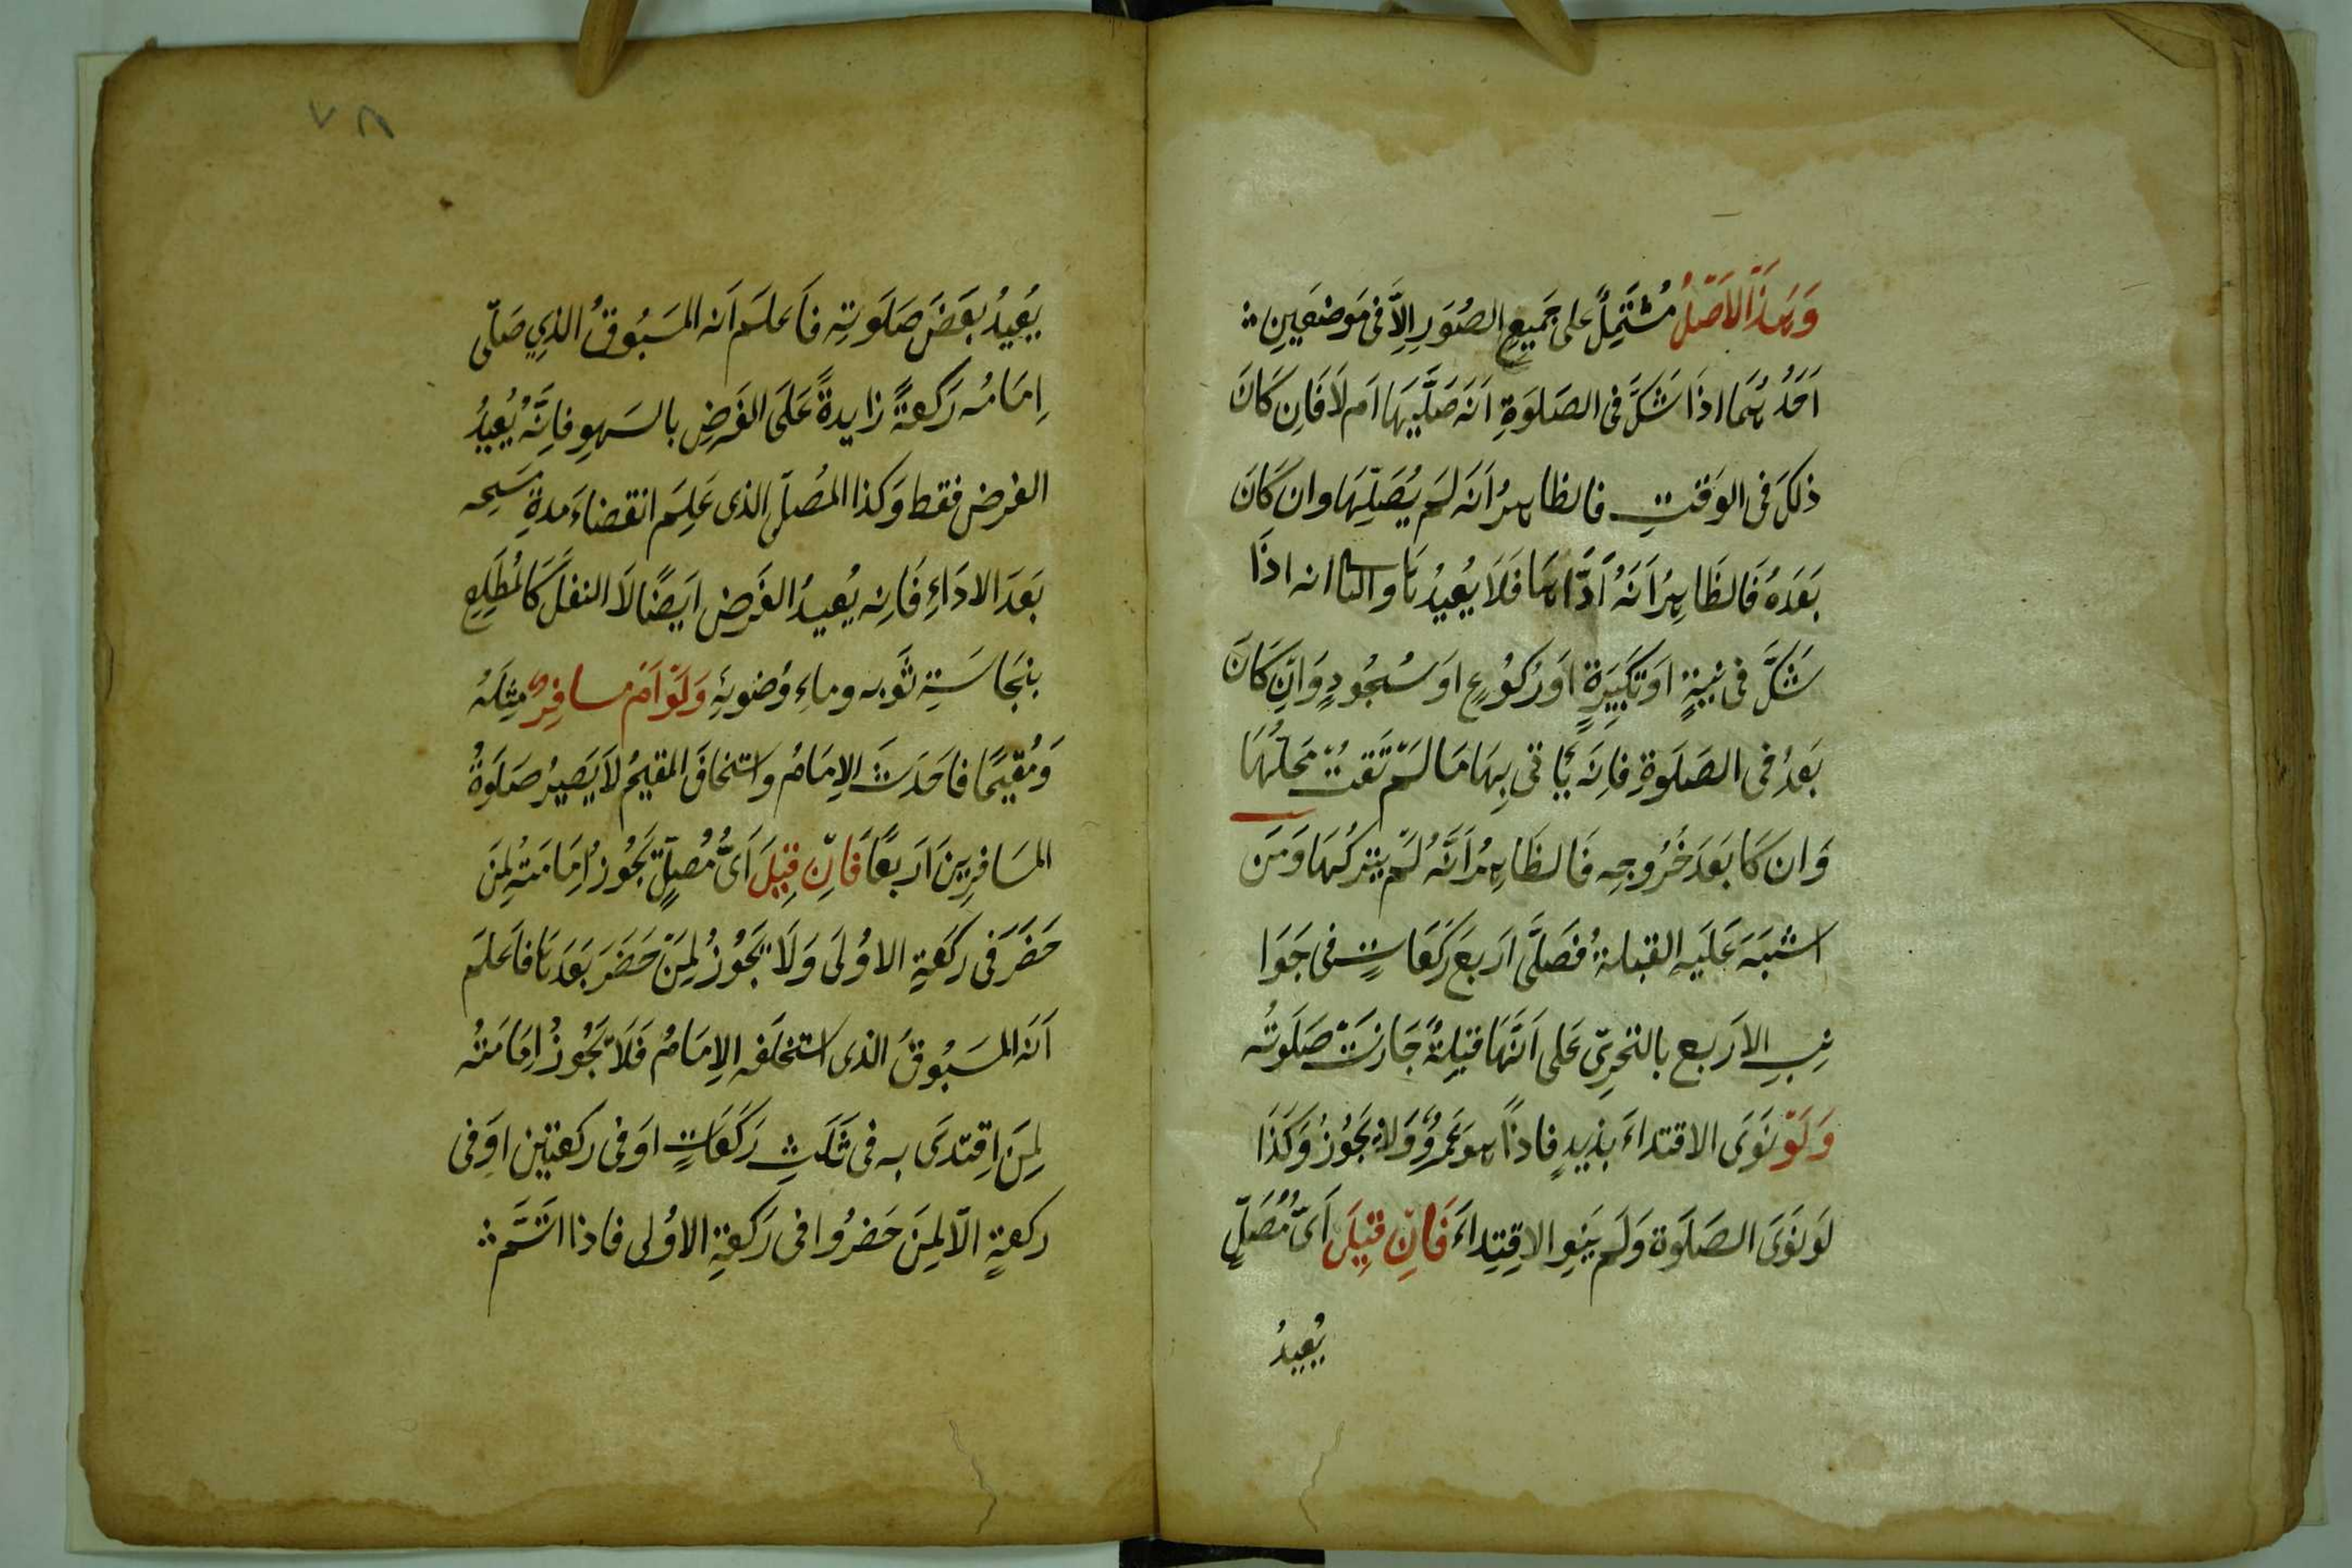 وَهَذَا الاَصْلُ مُشْتَمِلٌ على جَمِيعِ الصُوَرِ اِلاَّ فى مَوضعَينِ
اَحَدُهُمَا اذَا شَكَّ فى الصَلوَةِ اَنَه صَلَّيهَا اَم لَا فَاِن كَانَ
ذلكَ فى الوَقتِ فالظاهرُ اَنَه لَم يُصَلِّهَا وان كَانَ
بَعَدَهُ فَالظَاهِرُ اَنَهُ اَدَّاهَا فَلَا يُعِيدُهَا والثا انه اذَا
شَكَّ فى نيةٍ اَو تكبِيرَةٍ اَو رُكُوعٍ اَو سُجُودٍ وَاِن كَانَ
بَعَدُ فى الصَلَوةِ فاِنَه يَاتى بِهَا مَا لَم تَفتْ مَحلُهَا
وَان كَا بَعَدَ خُرُوجِه فَالظَاهِرُ اَنَّهُ لَم يتركهَا وَمَن
اشتبَهَ عَلَيهِ القبلةُ فَصَلَّى اَربعَ رَكعَاتٍ فى جَوَا
نبِ الاَربع بالتحرِّى عَلى اَنَّهَا قبلةٌ جَازَت صَلَوتُه
وَلَوْ نَوَى الاقتداءَ بزيدٍ فاذاً هو عَمرٌو وَلا يَجُوزُ وَكذَا
لَو نَوَى الصَلَوةَ وَلَم يَنوِ الاِقتِداءَ فَاِنْ قيلَ اَىُّ مُصَلٍّ
يُعِيدُ
يُعِيدُ بَعَضَ صَلَوتِه فاَعلَم اَنه المَسَبُوقُ الذِي صَلّى
اِمَامُه رَكعةً زايدةً عَلَى الفَرضِ بالسَهوِ فاِنَّهُ يُعِيدُ
الفرض فقط وَكذا المُصَلّى الذى عَلِمَ انقضاءَ مدةِ مَسَحِه
بَعَدَ الادَاءِ فَاِنه يُعيدُ الفَرض اَيضًا لَا النفلَ كَالمُطَلِعِ
بنجَاسَتِه ثَوبه وماءِ وُضويَهِ وَلَوْ اَم مسافِرٌ مثلَهُ
وَمُقيمًا فاَحَدَثَ الاِمَامُ واستخلفَ المقيمُ لَا يَصيرُ صَلَوةُ
المسَافِرِينَ اَربعًا فَاِنْ قيْلَ اَىُّ مُصلٍّ تَجُوزُ اِمَامَتُهِ لمَن
حَضَرَ فى رَكعَةِ الاوُلَى وَلَا يَجُوزُ لِمَنْ حَضَرَ بَعَدَهَا فاَعلَم
اَنَه المَسَبُوقُ الذى استخلَفه الاِمَامُ فَلَا تَجُوزُ اِمَامَتُه
لِمَنَ اِقتَدَى به فى ثَلَثِ رَكَعَاتٍ اَو فى ركعتين اَو فى
ركعةٍ اِلّا لِمَن حَضرُوا فى رَكعَةِ الاوُلى فاذا اَتَّمَ